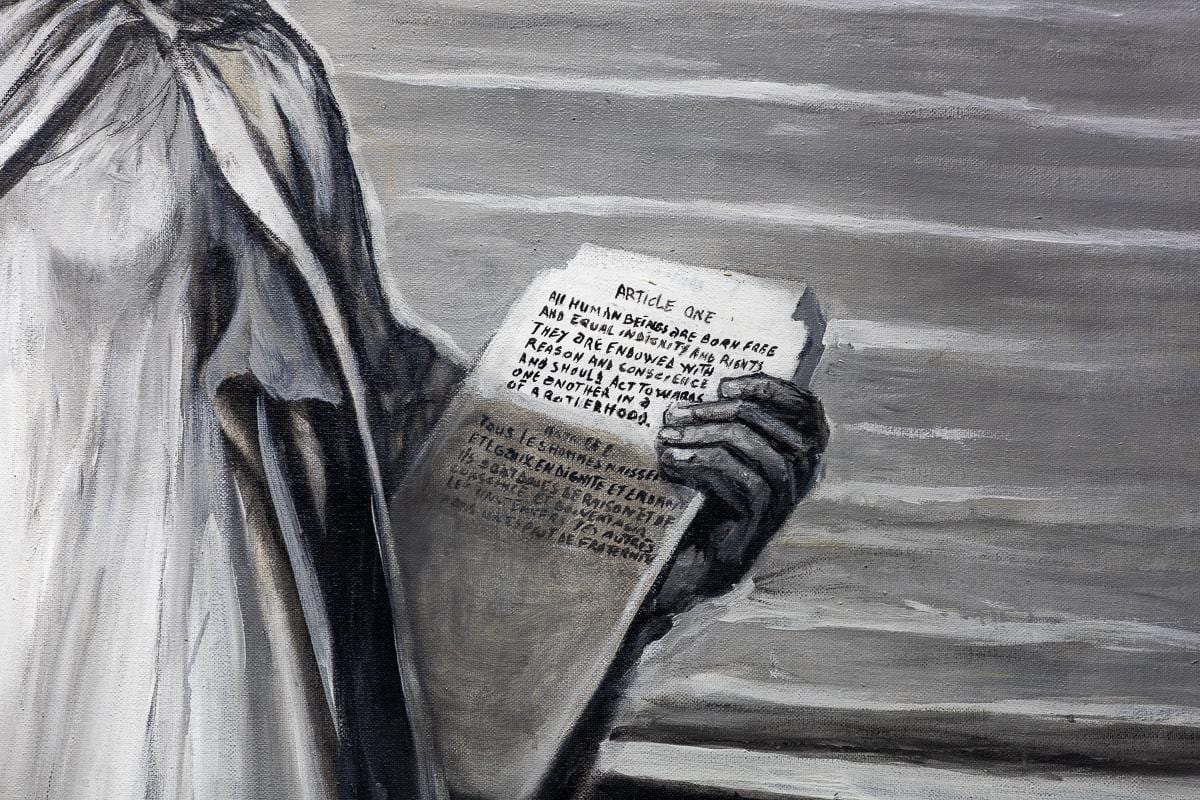 ARTICLE ONE
All HUMAN BEINGS ARE BORN FREE
AND EQUAL IN DIGNITY AND RIGHTS
THEY ARE ENDOWED WITH
REASON AND CONSCIENCE
AND SHOULD ACT TOWARDS
ONE ANOTHER IN A
OF BROTHERHOOD.
TOUS LES HOMMES NAISSEN
ET EGAUX EN DIGNITE ET EN DROIT
ILS SONT DOUES DE RAISON ET DE
CONSCIENCE ET DOIVENT AGIR
LES UNS ENVERS LES AUTRES
DANS UN ESPRIT DE FRATERNITE